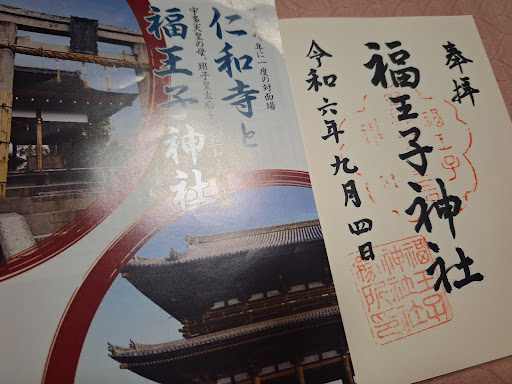 仁和寺と
福王子神社
年に一度の対面場
宇多天皇の母、班子皇太后を
奉拝
福王子神社
令和六年九月四日
福王子
神社社
務所印